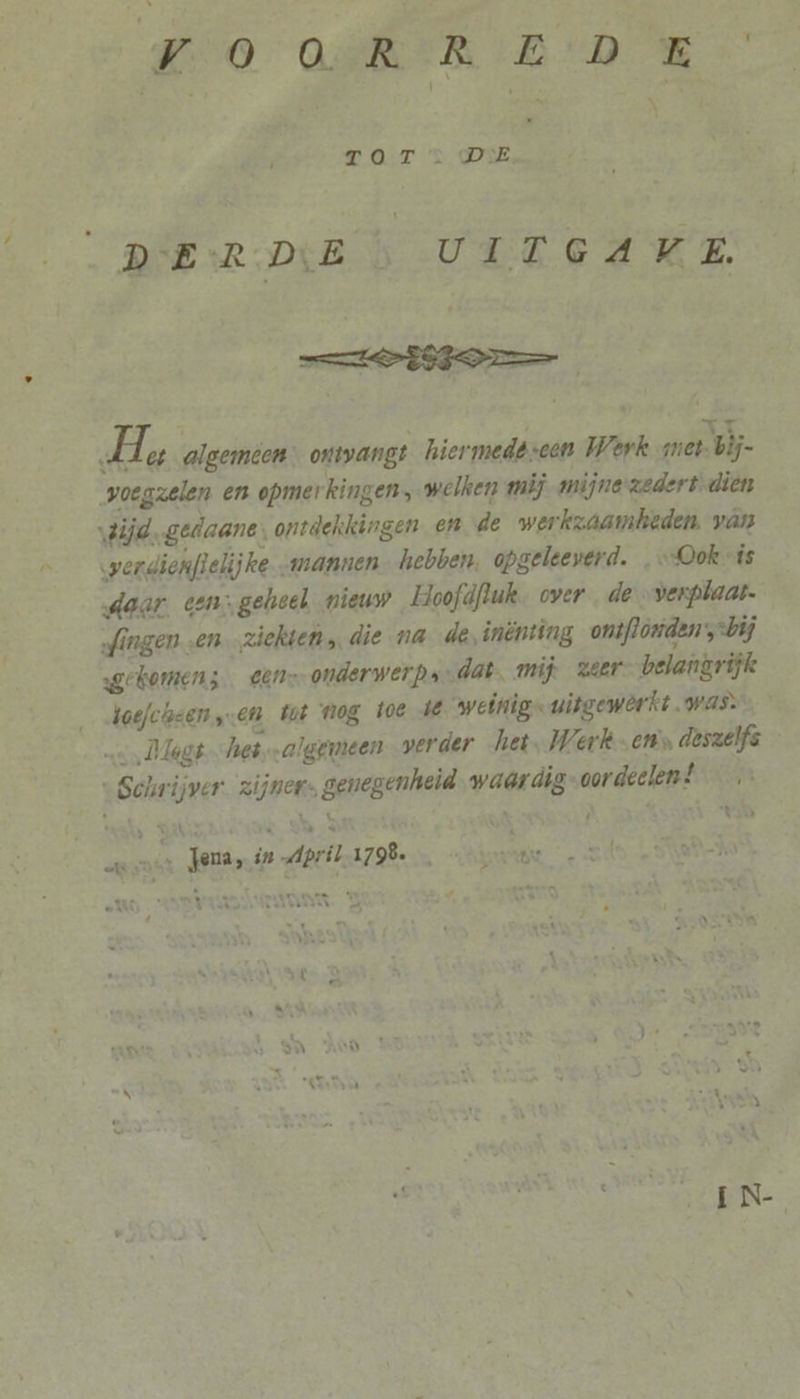 VOORREDE
TOT DE
DERDE UITGAVE.
Het algemeen ontvangt hiermede een Werk met bij-
voegzelen en opmerkingen, welken mij mijne zedert dien
tijd gedaane ontdekkingen en de werkzaamheden van
verdienſtelijke mannen hebben opgeleeverd. Ook is
daar een geheel nieuw Hoofdſtuk over de verplaat-
ſingen en ziekten, die na de inënting ontſtonden, bij
gekomen; een onderwerp, dat mij zeer belangrijk
toeſcheen, en tot nog toe te weinig uitgewerkt was.
Mogt het algemeen verder het Werk en deszelfs
Schrijver zijner genegenheid waardig oordeelen!
Jena, in April 1798.
IN-